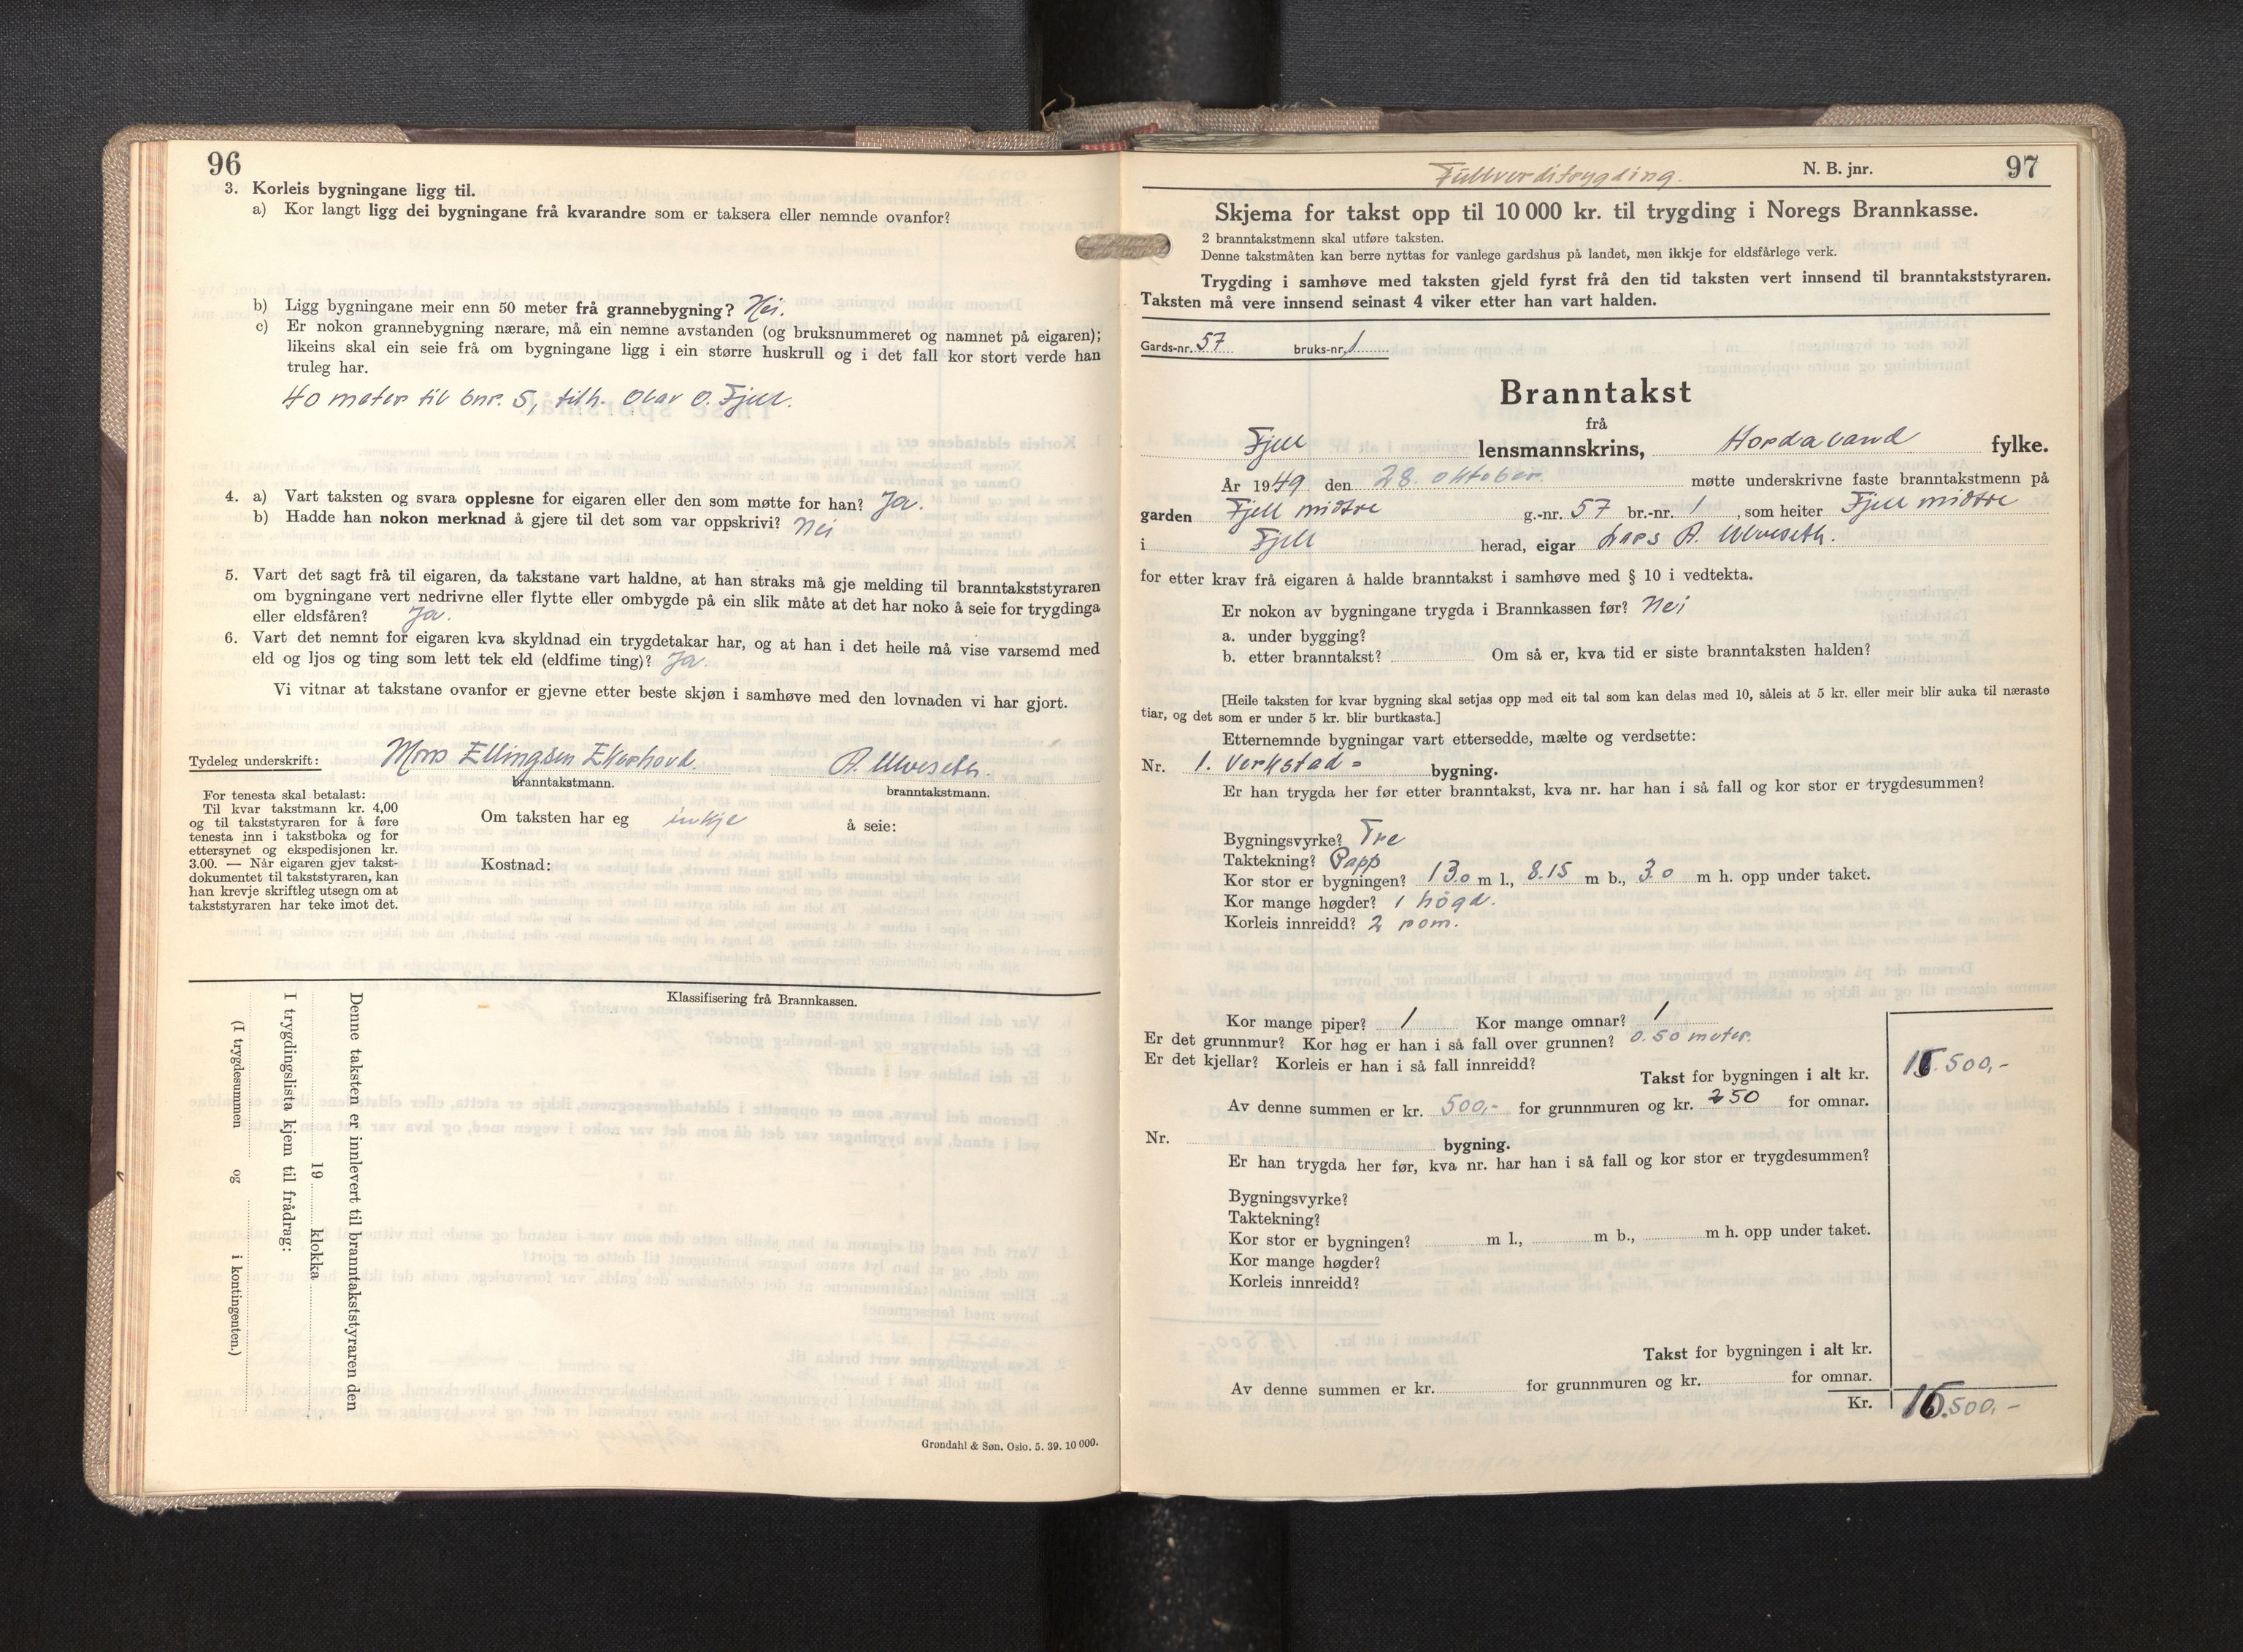 96
3. Korleis bygningane ligg til.
a) Kor langt ligg dei bygningane frå kvarandre som er taksera eller nemnde ovanfor?
b) Ligg bygningane meir enn 50 meter frå grannebygning? Nei.
c) Er nokon grannebygning nærare, må ein nemne avstanden (og bruksnummeret og namnet på eigaren);
likeins skal ein seie frå om bygningane ligg i ein større huskrull og i det fall kor stort verde han
truleg har.
40 meter til bnr. 5, tilh. Olav O. Fjell.
4. a) Vart taksten og svara opplesne for eigaren eller den som møtte for han? Ja.
b) Hadde han nokon merknad å gjere til det som var oppskrivi? Nei
5. Vart det sagt frå til eigaren, da takstane vart haldne, at han straks må gje melding til branntakststyraren
om bygningane vert nedrivne eller flytte eller ombygde på ein slik måte at det har noko å seie for trygdinga
eller eldsfåren? Ja.
6. Vart det nemnt for eigaren kva skyldnad ein trygdetakar har, og at han i det heile må vise varsemd med
eld og ljos og ting som lett tek eld (eldfime ting)? Ja.
Vi vitnar at takstane ovanfor er gjevne etter beste skjøn i samhøve med den lovnaden vi har gjort.
Tydeleg underskrift: Mons Ellingsen Ekerhovd. A. Ulveseth.
branntakstmann. branntakstmann.
For tenesta skal betalast:
Til kvar takstmann kr. 4,00
og til takststyraren for å føre
tenesta inn i takstboka og for
ettersynet og ekspedisjonen kr.
3.00. — Når eigaren gjev takst-
dokumentet til takststyraren, kan
han krevje skriftleg utsegn om at
takststyraren har teke imot det.
Om taksten har eg inkje å seie:
Kostnad:
Klassifisering frå Brannkassen.
Denne taksten er innlevert til branntakststyraren den
19 klokka
I trygdingslista kjem til frådrag:
(I trygdesummen og i kontingenten.)
Grøndahl & Søn. Oslo. 5. 39. 10 000.
Fullverditrygding. N. B. jnr. 97
Skjema for takst opp til 10 000 kr. til trygding i Noregs Brannkasse.
2 branntakstmenn skal utføre taksten.
Denne takstmåten kan berre nyttas for vanlege gardshus på landet, men ikkje for eldsfårlege verk.
Trygding i samhøve med taksten gjeld fyrst frå den tid taksten vert innsend til branntakststyraren.
Taksten må vere innsend seinast 4 viker etter han vart halden.
Gards-nr. 57 bruks-nr. 1
Branntakst
frå
Fjell lensmannskrins, Hordaland fylke.
År 1949 den 28. oktober. møtte underskrivne faste branntakstmenn på
garden Fjell midtre g.-nr. 57 br.-nr. 1, som heiter Fjell midtre
i Fjell herad, eigar Lars A. Ulveseth.
for etter krav frå eigaren å halde branntakst i samhøve med § 10 i vedtekta.
Er nokon av bygningane trygda i Brannkassen før? Nei
a. under bygging?
b. etter branntakst? Om så er, kva tid er siste branntaksten halden?
[Heile taksten for kvar bygning skal setjas opp med eit tal som kan delas med 10, såleis at 5 kr. eller meir blir auka til næraste
tiar, og det som er under 5 kr. blir burtkasta.]
Etternemnde bygningar vart ettersedde, mælte og verdsette:
Nr. 1. Verkstad- bygning.
Er han trygda her før etter branntakst, kva nr. har han i så fall og kor stor er trygdesummen?
Bygningsvyrke? Tre
Taktekning? Papp
Kor stor er bygningen? 13.0 m l., 8.15 m b., 3.0 m h. opp under taket.
Kor mange høgder? 1 høgd.
Korleis innreidd? 2 rom.
Kor mange piper? 1 Kor mange omnar? 1
Er det grunnmur? Kor høg er han i så fall over grunnen? 0.50 meter.
Er det kjellar? Korleis er han i så fall innreidd?
Takst for bygningen i alt kr. .500,-
Av denne summen er kr. 500,- for grunnmuren og kr. 250 for omnar.
Nr. bygning.
Er han trygda her før, kva nr. har han i så fall og kor stor er trygdesummen?
Bygningsvyrke?
Taktekning?
Kor stor er bygningen? m l., m b., m h. opp under taket.
Kor mange høgder?
Korleis innreidd?
Takst for bygningen i alt kr.
Av denne summen er kr. for grunnmuren og kr. for omnar.
Kr. .500,-